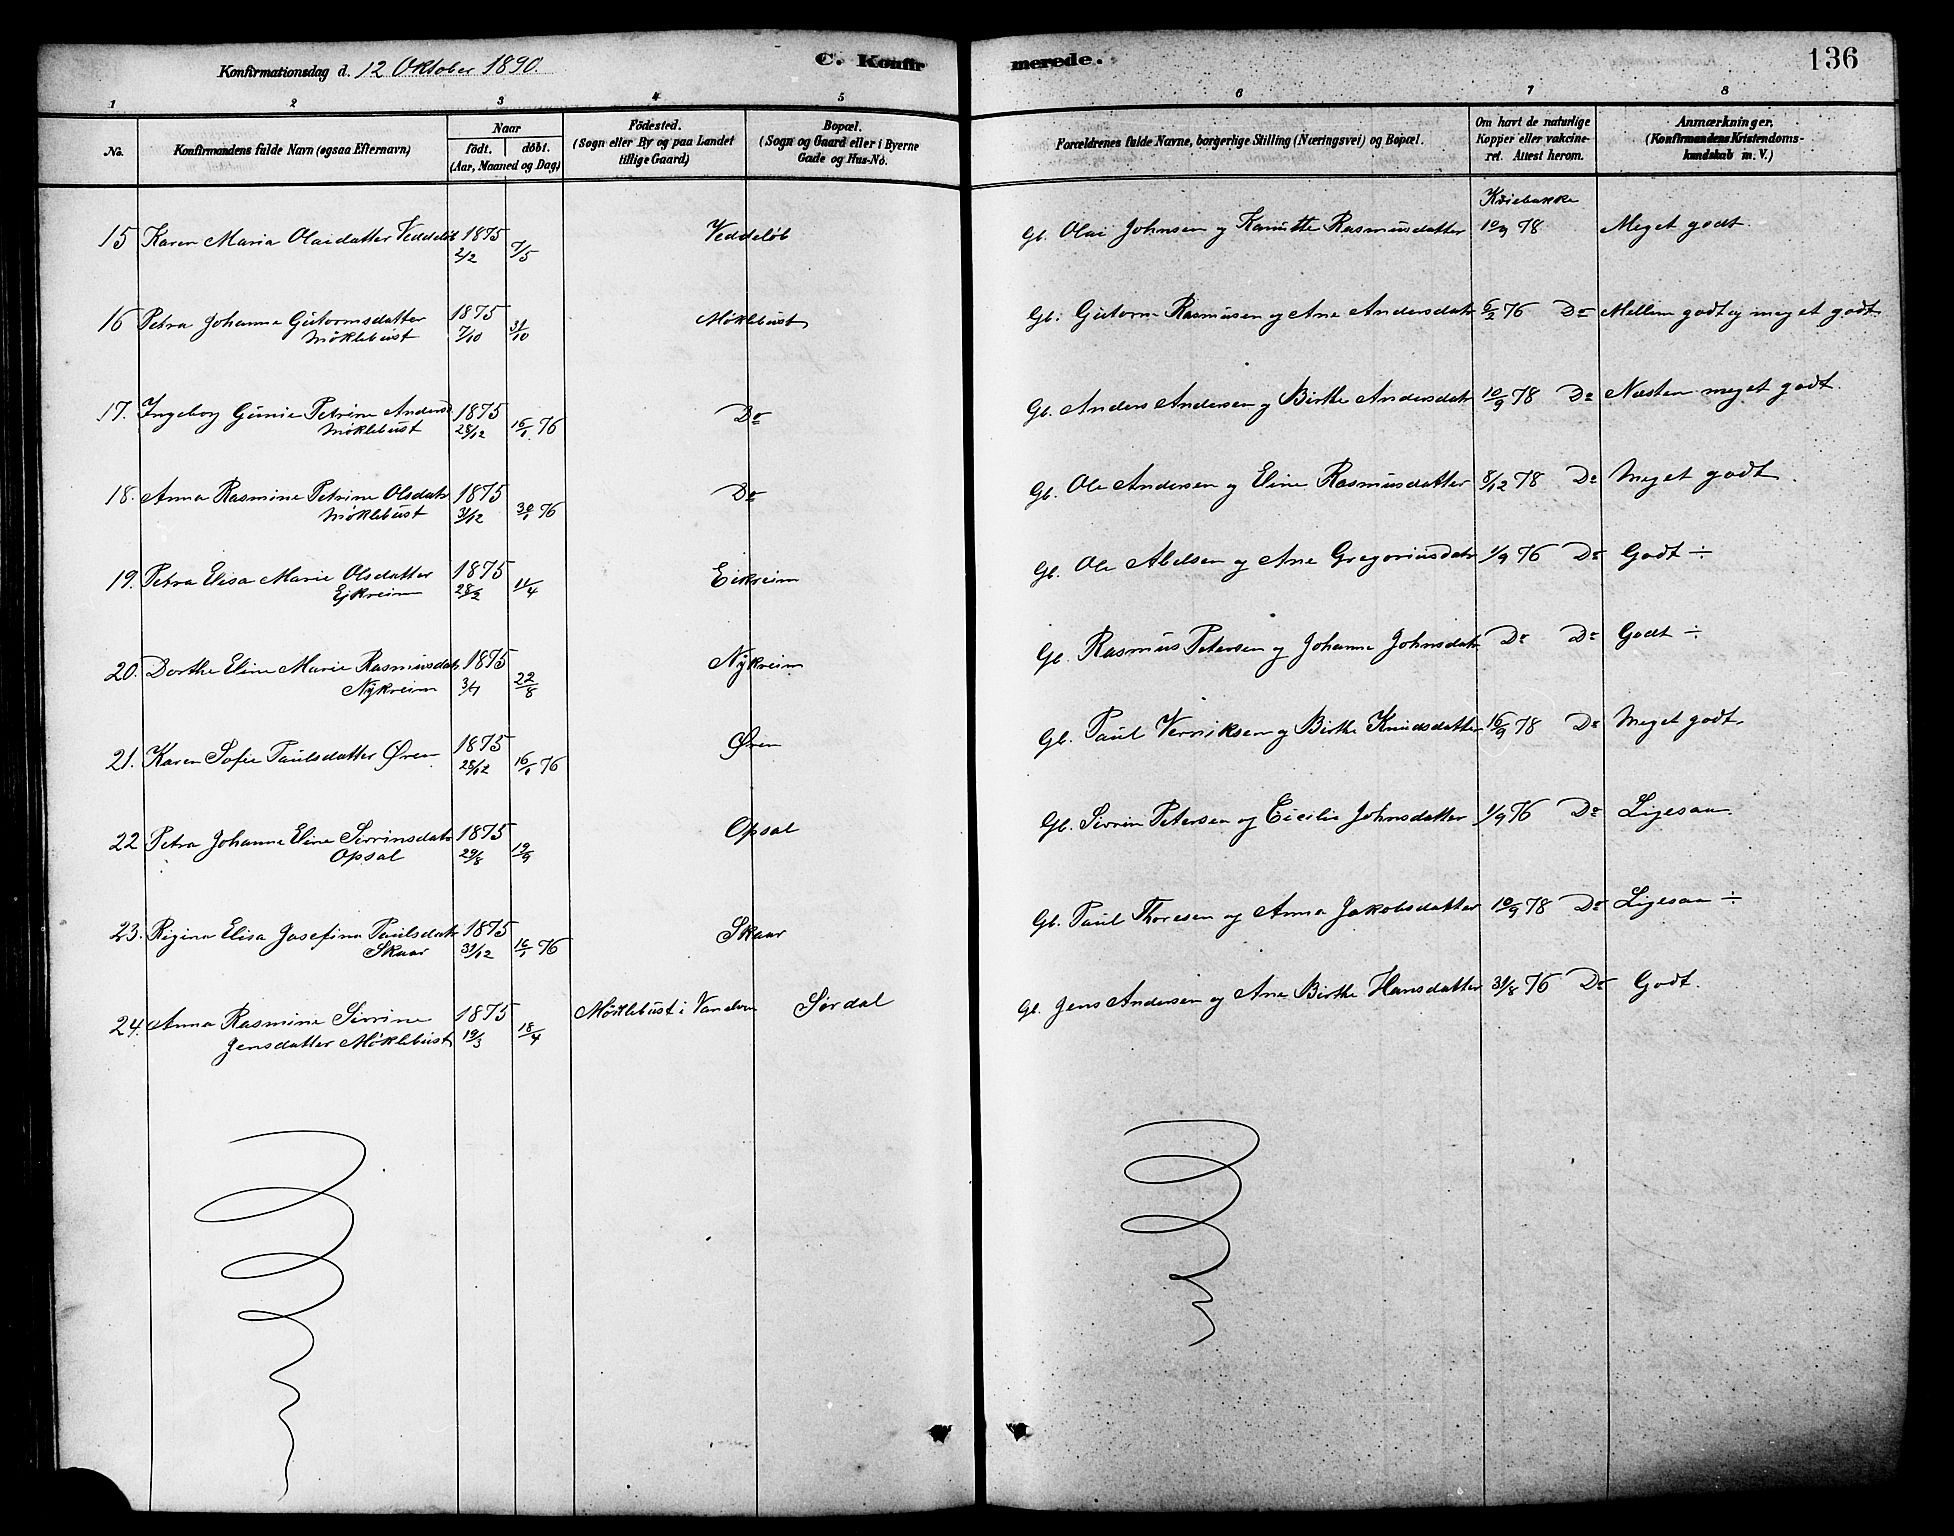 Konfirmationsdag d. 12 Oktober 1890. C. Konfir merede. 136
1 2 3 4 5 6 7 8
No.
Konfirmandens fulde Navn (ogsaa Efternavn)
Naar
födt. döbt.
(Aar, Maaned og Dag)
Födested.
(Sogn eller By og paa Landet
tillige Gaard)
Bopæl.
(Sogn og Gaard eller i Byerne
Gade og Hus-No.
Forældrenes fulde Navne, borgerlige Stilling (Næringsvei) og Bopæl.
Om havt de naturlige
Kopper eller vakcine-
ret. Attest herom.
Anmærkninger,
(Konfirmandens Kristendoms-
kundskab m. V.)
Kviebakke
15 Karen Maria Olaidatter Veddeløb 1875 Veddeløb Gb. Olai Johnsen og Kanutte Rasmusdatter 10/9 78 Meget godt.
2/2 7/5
16 Petra Johanne Guttormsdatter 1875 Møklebust Gb. Guttorm Rasmusen og Ane Andersdatr 6/2 76 Do Mellem godt og meget godt
Møklebust 7/10 31/10
17. Ingeborg Gunie Petrine Andersd 1875 Do Gb. Anders Andersen og Birthe Andersdatr 10/9 78 Do Næsten meget godt.
Møklebust 28/12 16/1 76
18. Anna Rasmine Petrine Olsdatr 1875 Do Gb. Ole Andersen og Eline Rasmusdatter 8/12 78 Do Meget godt.
Møklebust 31/12 30/1 76
19. Petra Elisa Marie Olsdatter 1875 Eikreim Gb. Ole Abelsen og Ane Gregoriusdatr 1/9 76 Do Godt ÷
Ejkreim 28/2 11/4
20. Dorthe Eline Marie Rasmusdatr 1875 Nykreim Gb. Rasmus Petersen og Johanne Johnsdatr Do Do Godt ÷
Nykreim 3/7 22/8
21. Karen Sofie Paulsdatter Øren 1875 Øren Gb. Paul Verriksen og Birthe Knudsdatter 16/9 78 Do Meget godt.
28/12 16/1 76
22 Petra Johanne Eline Sivrinsdatr 1875 Opsal Gb. Sivrin Petersen og Cicilie Johnsdatter 1/9 76 Do Ligesaa.
Opsal 29/8 19/9
23. Rigina Elisa Josefina Paulsdatr 1875 Skaar Gb. Paul Thoresen og Anna Jakobsdatter 10/9 78 Do Ligesaa ÷
Skaar 31/12 16/1 76
24. Anna Rasmine Sivrine 1875 Møklebust i Vanelven Sørdal Gb. Jens Andersen og Ane Birthe Hansdatter 31/8 76 Do Godt.
Jensdatter Møklebust 19/3 18/4